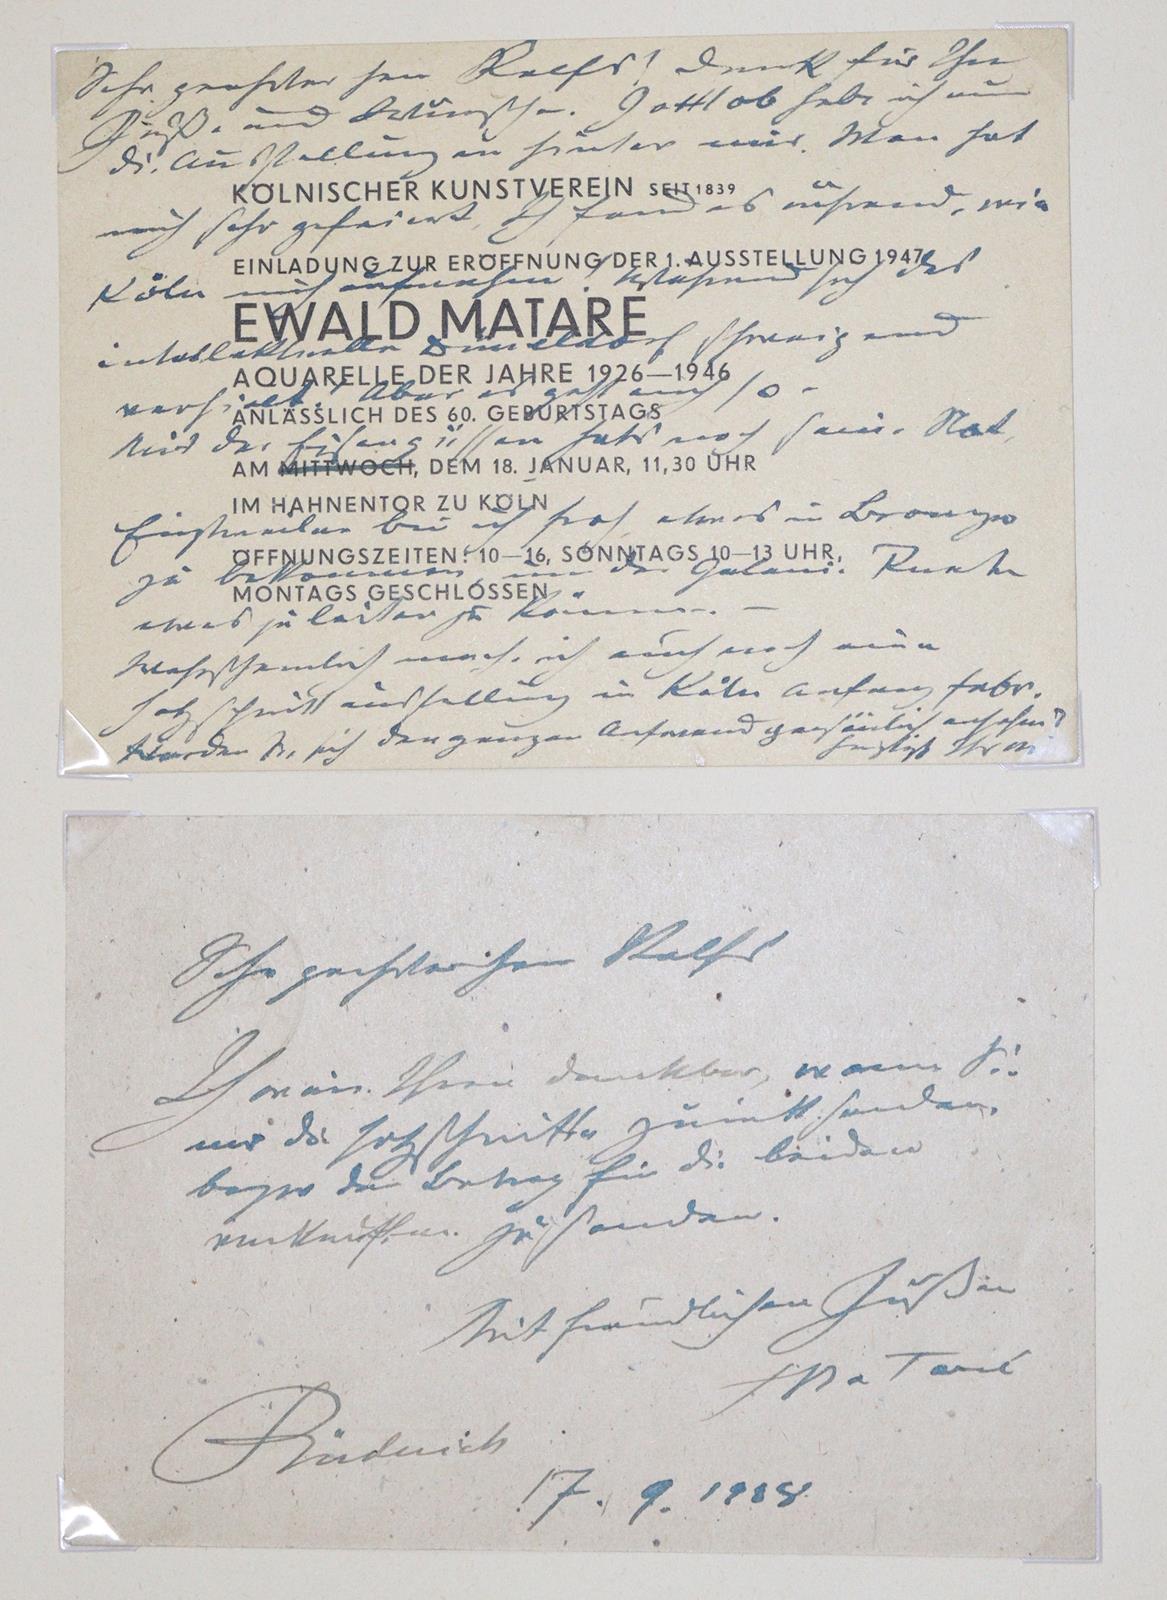 Sehr geehrter Herr Ralfs! Dank für Ihre
Grüße und Wünsche. Gottlob habe ich nun
die Ausstellungen hinter mir. Man hat
KÖLNISCHER KUNSTVEREIN SEIT 1839
mich sehr gefeiert, ich fand es rührend, wie
EINLADUNG ZUR ERÖFFNUNG DER 1. AUSSTELLUNG 1947
Köln mich aufnahm! Während sich das
EWALD MATARÉ
intellektuelle Düsseldorf schweigend
AQUARELLE DER JAHRE 1926—1946
verhielt! Aber es geht auch so -
ANLÄSSLICH DES 60. GEBURTSTAGS
Mit den Eisengüssen hats noch seine Not,
AM MITTWOCH, DEM 18. JANUAR, 11,30 UHR
IM HAHNENTOR ZU KÖLN
Einstweilen bin ich froh, etwas in Bronze
ÖFFNUNGSZEITEN: 10—16, SONNTAGS 10—13 UHR,
zu bekommen, um der Galerie
MONTAGS GESCHLOSSEN
etwas zu können. —
Wahrscheinlich mache ich auch noch eine
Holzschnittausstellung in Köln Anfang Febr.
Würden Sie sich den ganzen Aufwand persönlich ansehen?
Herzlichst Ihr
Sehr geehrter Herr Ralfs
Ich wäre Ihnen dankbar, wenn Sie
mir die Holzschnitte zurück senden,
bezw den Betrag für die beiden
verkauften zu senden.
Mit freundlichen Grüßen
Mataré
Büderich
17. 9. 1948